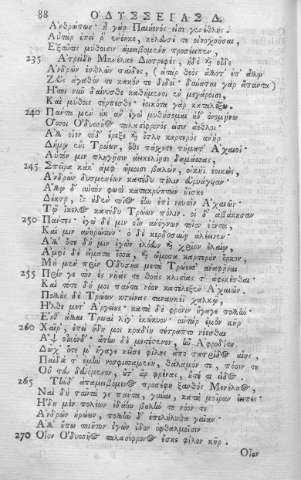 88 ΟΔΥΣΣΕΙΑΣ Δ.
Ἀνθρώπων· ἦ γὰρ Παιήονός εἰσι γενέθλης.
Αὐτὰρ ἐπεί ῥ' ἐνέηκε, κέλευσέ τε οἰνοχοῆσαι,
Ἐξαῦτις μύθοισιν ἀμειβομένη προσέειπεν,
235 Ἀτρείδη Μενέλαε Διοτρεφὲς, ἠδὲ καὶ οἵδε
Ἀνδρῶν ἐσθλῶν παῖδες, (ἀτὰρ θεὸς ἄλλοτ' ἐπ' ἄλλῳ
Ζεὺς ἀγαθόν τε κακόν τε διδοῖ· δύναται γὰρ ἅπαντα)
Ἤτοι νῦν δαίνυσθε καθήμενοι ἐν μεγάροισι,
Καὶ μύθοις τέρπεσθε· ἐοικότα γὰρ καταλέξω.
240 Πάντα μὲν οὐκ ἂν ἐγὼ μυθήσομαι οὐδ' ὀνομήνω
Ὅσσοι Ὀδυσσῆος ταλασίφρονός εἰσιν ἄεθλοι·
Ἀλλ' οἷον τόδ' ἔρεξε καὶ ἔτλη καρτερὸς ἀνὴρ
Δήμῳ ἔνι Τρώων, ὅθι πάσχετε πήματ' Ἀχαιοί.
Αὐτόν μιν πληγῇσιν ἀεικελίῃσι δαμάσσας,
245 Σπεῖρα κάκ' ἀμφ' ὤμοισι βαλὼν, οἰκῆϊ ἐοικὼς,
Ἀνδρῶν δυσμενέων κατέδυ πόλιν εὐρυάγυιαν
Ἄλλῳ δ' αὐτὸν φωτὶ κατακρύπτων ἤϊσκε
Δέκτῃ, ὃς οὐδὲν τοῖος ἔην ἐπὶ νηυσὶν Ἀχαιῶν·
Τῷ ἴκελος κατέδυ Τρώων πόλιν· οἱ δ' ἀβάκησαν
250 Πάντες· ἐγὼ δέ μιν οἴη ἀνέγνων τοῖον ἐόντα,
Καί μιν ἀνηρώτων· ὁ δὲ κερδοσύνῃ ἀλέεινεν·
Ἀλλ' ὅτε δή μιν ἐγὼν ἐλόευν καὶ χρῖον ἐλαίῳ,
Ἀμφὶ δὲ εἵματα ἕσσα, καὶ ὤμοσα καρτερὸν ὅρκον,
Μὴ μὲν πρὶν Ὀδυσῆα μετὰ Τρώεσσ' ἀναφῆναι
255 Πρίν γε τὸν ἐς νῆάς τε θοὰς κλισίας τ' ἀφικέσθαι
Καὶ τότε δή μοι πάντα νόον κατέλεξεν Ἀχαιῶν.
Πολλοὺς δὲ Τρώων κτείνας ταναήκεϊ χαλκῷ,
Ἦλθε μετ' Ἀργείους· κατὰ δὲ φρόνιν ἤγαγε πολλήν.
Ἔνθ' ἄλλαι Τρωαὶ λίγ' ἐκώκυον· αὐτὰρ ἐμὸν κῆρ
260 Χαῖρ', ἐπεὶ ἤδη μοι κραδίη τέτραπτο νέεσθαι
Ἂψ οἶκόνδ'· ἄτην δὲ μετέστενον, ἣν Ἀφροδίτη
Δῶχ', ὅτε μ' ἤγαγε κεῖσε φίλης ἀπὸ πατρίδος αἴης,
Παῖδά τ' ἐμὴν νοσφισσαμένην, θάλαμόν τε, πόσιν τε
Οὔ τευ δευόμενον, οὔτ' ἂρ φρένας, οὔτε τι εἶδος
265 Τὴν δ' ἀπαμειβόμενος προσέφη ξανθὸς Μενέλαος,
Ναὶ δὴ ταῦτά γε πάντα, γύναι, κατὰ μοῖραν ἔειπες·
Ἤδη μὲν πολέων ἐδάην βουλήν τε νόον τε
Ἀνδρῶν ἡρώων, πολλὴν δ' ἐπελήλυθα γαῖαν·
Ἀλλ' οὔπω τοιοῦτον ἐγὼν ἴδον ὀφθαλμοῖσιν
270 Οἷον Ὀδυσσῆος ταλασίφρονος ἔσκε φίλον κῆρ.
Οἷον